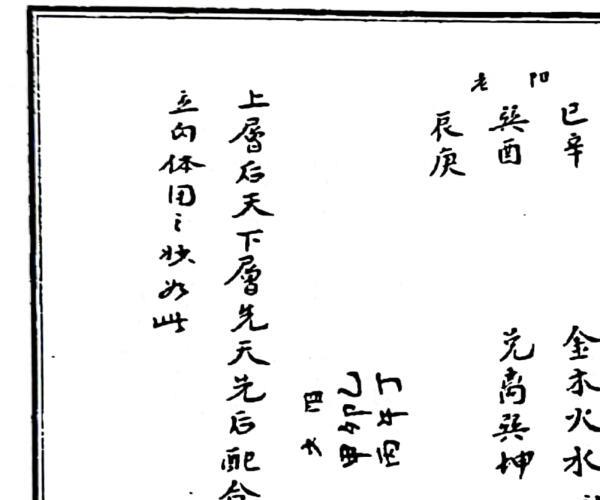 巳辛
金木火水
老阳
巽酉
兑离巽坤
辰庚
丁午丙
乙卯甲
四
上層后天下層先天先后配合
立向体用之妙如此